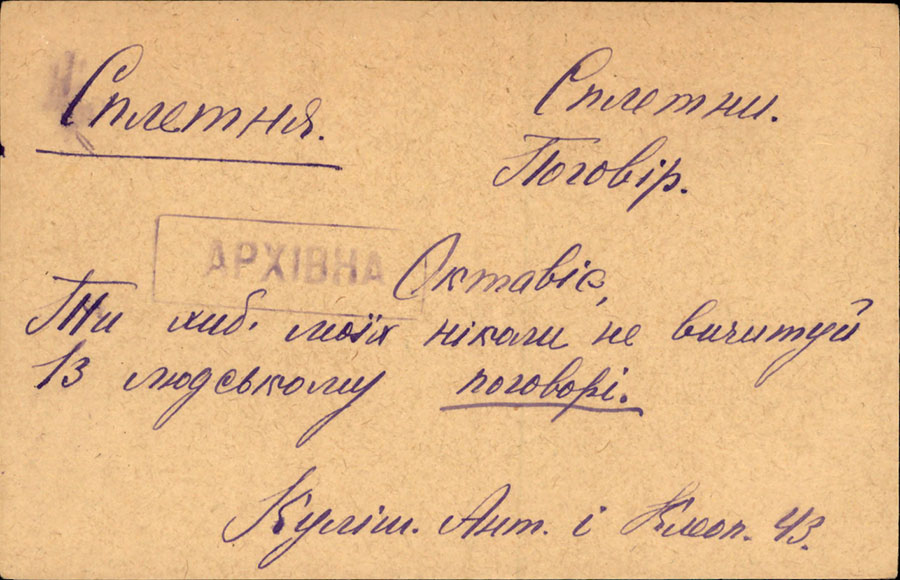 Сплетня.
Сплетни.
Поговір.
АРХІВНА
Октавіє,
Ти хиб. моїх ніколи не вичитуй
Із людському поговорі.
Куліш. Ант. і Клеоп. 43.